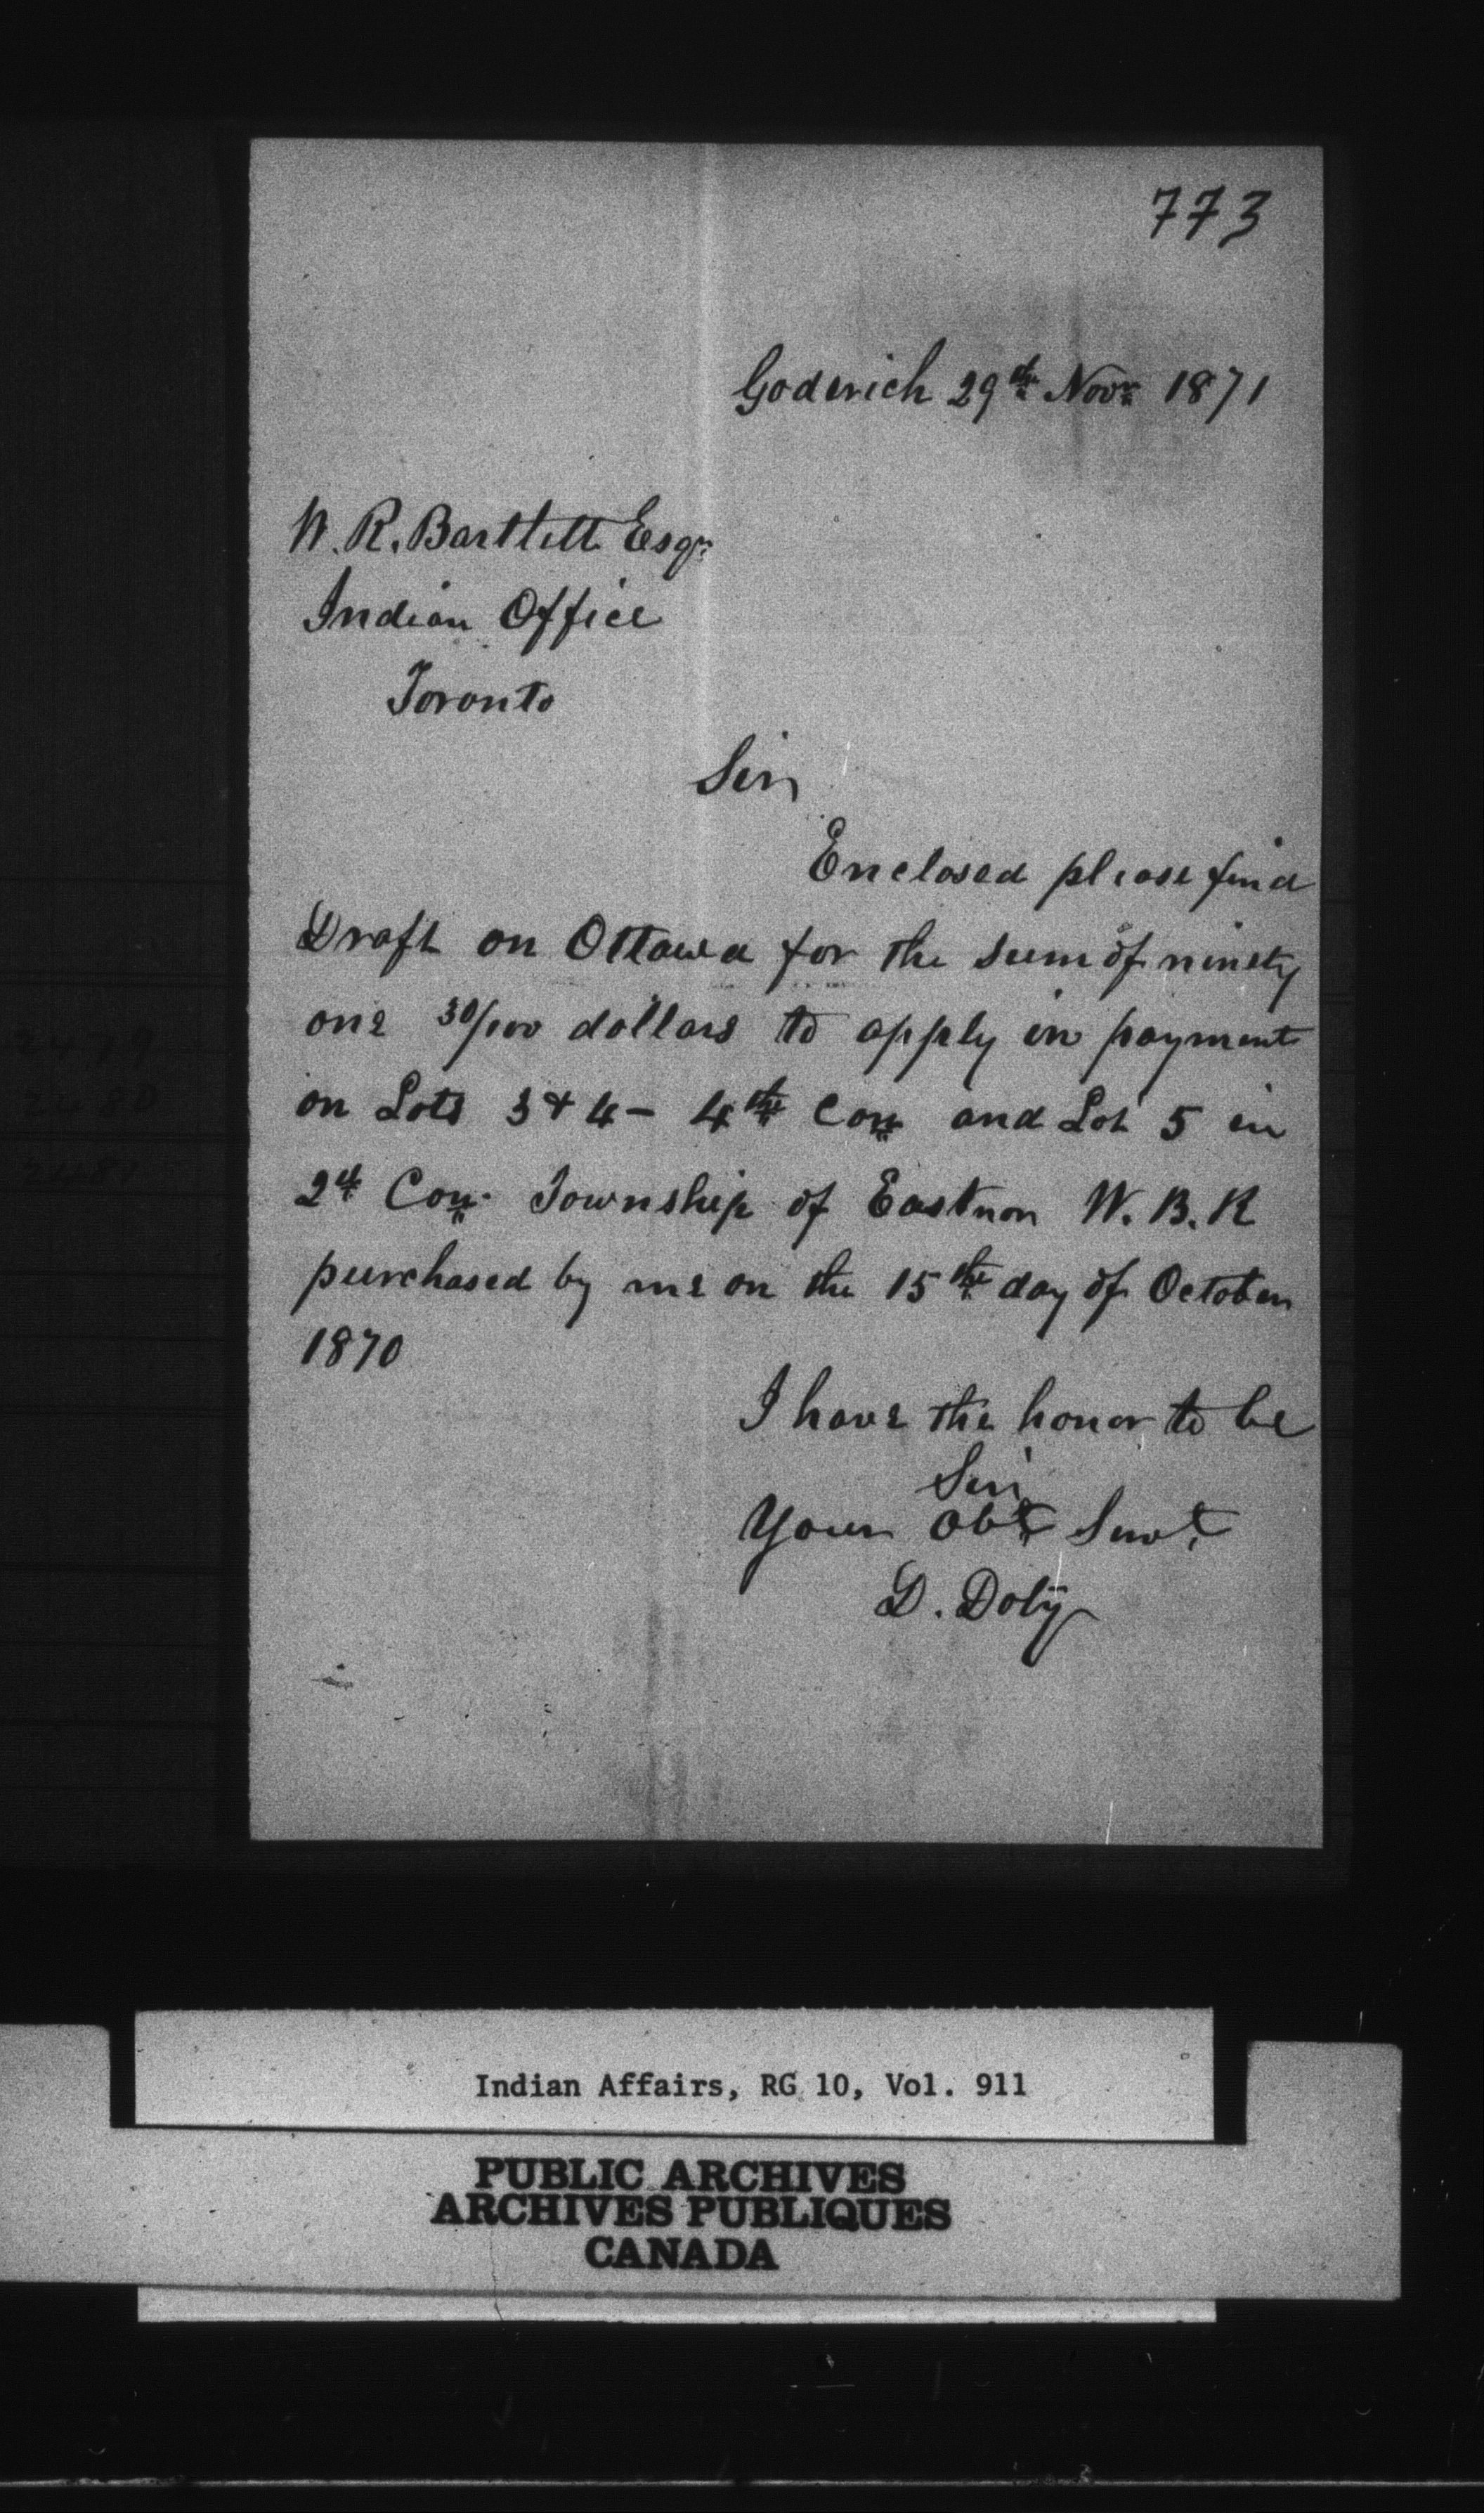 773
Goderich 29th Novr 1871
W. R. Bartlett Esqr
Indian Office
Toronto
Sir
Enclosed please find
Draft on Ottawa for the sum of ninety
one 30/100 dollars to apply in payment
on Lots 3 & 4 – 4th Con and Lot 5 in
2d Con. Township of Eastnor W. B. R
purchased by me on the 15th day of October
1870
I have the honor to be
Sir
Your Obt Servt.
D. Doty
2479
2480
2481
Indian Affairs, RG 10, Vol. 911
PUBLIC ARCHIVES
ARCHIVES PUBLIQUES
CANADA